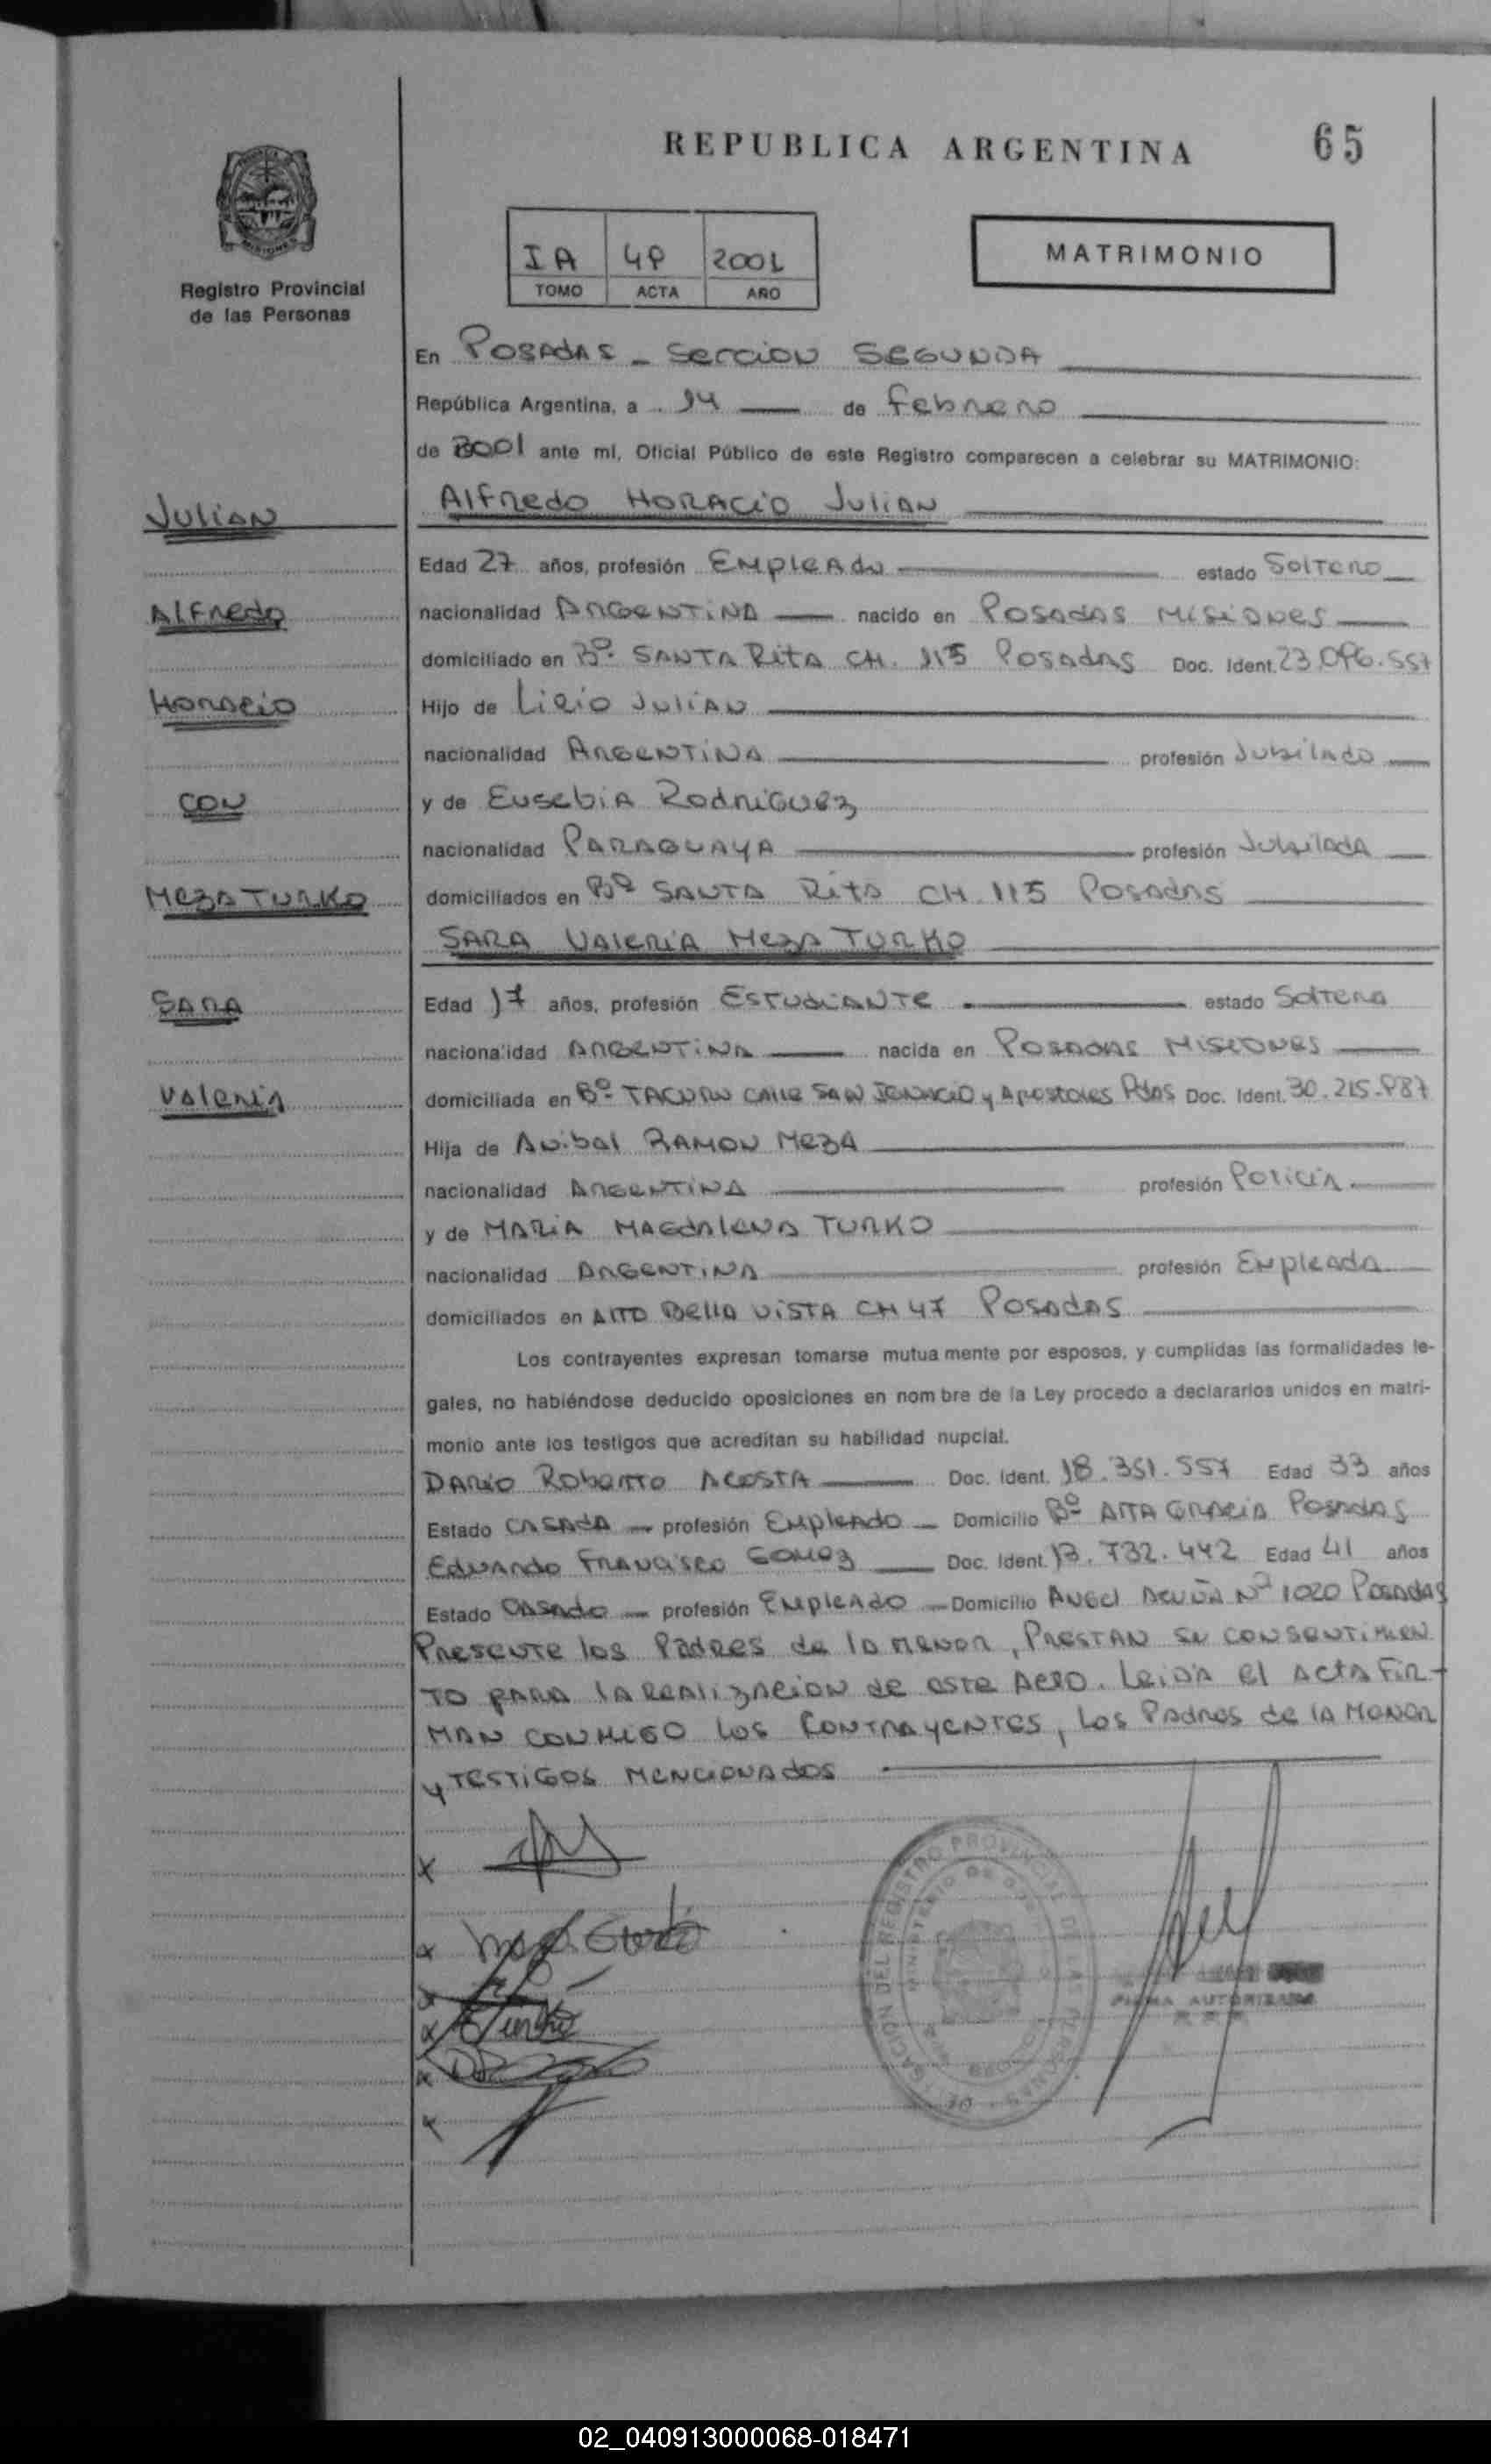 REPUBLICA ARGENTINA 65
IA 2001
TOMO ACTA AÑO
MATRIMONIO
MISIONES
Registro Provincial
de las Personas
En POSADAS - SECCION SEGUNDA
República Argentina, a 14 de febrero
de 2001 ante mí, Oficial Público de este Registro comparecen a celebrar su MATRIMONIO:
JULIAN
Alfredo HORACIO JULIAN
Edad 27 años, profesión EMPLEADO estado SOLTERO
ALFREDO
nacionalidad ARGENTINA nacido en POSADAS MISIONES
domiciliado en Bº SANTA RITA CH. 115 POSADAS Doc. Ident. 23.096.557
HORACIO
Hijo de LIRIO JULIAN
nacionalidad ARGENTINA profesión JUBILADO
CON
y de EUSEBIA RODRIGUEZ
nacionalidad PARAGUAYA profesión JUBILADA
MEZA TURKO
domiciliados en Bº SANTA RITA CH. 115 POSADAS
SARA VALERIA MEZA TURKO
SARA
Edad 17 años, profesión ESTUDIANTE estado SOLTERA
nacionalidad ARGENTINA nacida en POSADAS MISIONES
VALERIA
domiciliada en Bº TACURU CALLE SAN IGNACIO y APOSTOLES Pdas Doc. Ident. 30.215.987
Hija de ANIBAL RAMON MEZA
nacionalidad ARGENTINA profesión POLICIA
y de MARIA MAGDALENA TURKO
nacionalidad ARGENTINA profesión EMPLEADA
domiciliados en ALTO BELLA VISTA CH 47 POSADAS
Los contrayentes expresan tomarse mutua mente por esposos, y cumplidas las formalidades le-
gales, no habiéndose deducido oposiciones en nom bre de la Ley procedo a declararlos unidos en matri-
monio ante los testigos que acreditan su habilidad nupcial.
DARIO ROBERTO ACOSTA Doc. Ident. 18.351.557 Edad 33 años
Estado CASADA profesión EMPLEADO Domicilio Bº ALTA GRACIA POSADAS
EDUARDO FRANCISCO GOMEZ Doc. Ident. 13.732.442 Edad 41 años
Estado CASADO profesión EMPLEADO Domicilio ANGEL ACUÑA Nº 1020 POSADAS
PRESENTE los PADRES de la MENOR, PRESTAN SU CONSENTIMIEN
TO PARA LA REALIZACION de este ACTO. LEIDA el ACTA FIR-
MAN CONMIGO LOS CONTRAYENTES, LOS PADRES de la MENOR
y TESTIGOS MENCIONADOS
DELEGACION DEL REGISTRO PROVINCIAL DE LAS PERSONAS
MINISTERIO DE
FIRMA AUTORIZADA
02_040913000068-018471